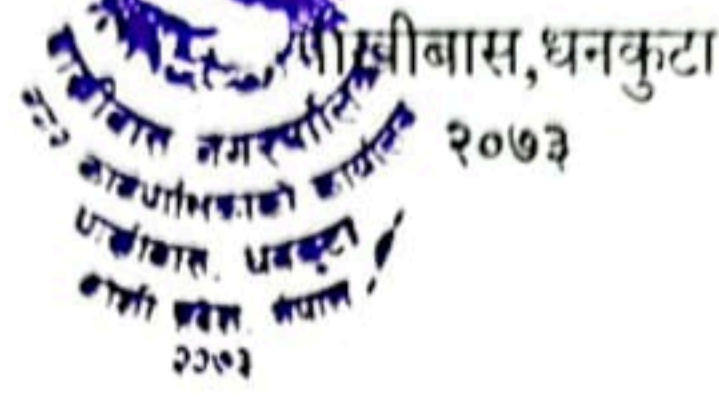 पाख्रीबास,धनकुटा
२०७३
पाख्रीबास नगरपालिका
नगर कार्यपालिकाको कार्यालय
पाख्रीबास, धनकुटा
कोशी प्रदेश, नेपाल
२०७३